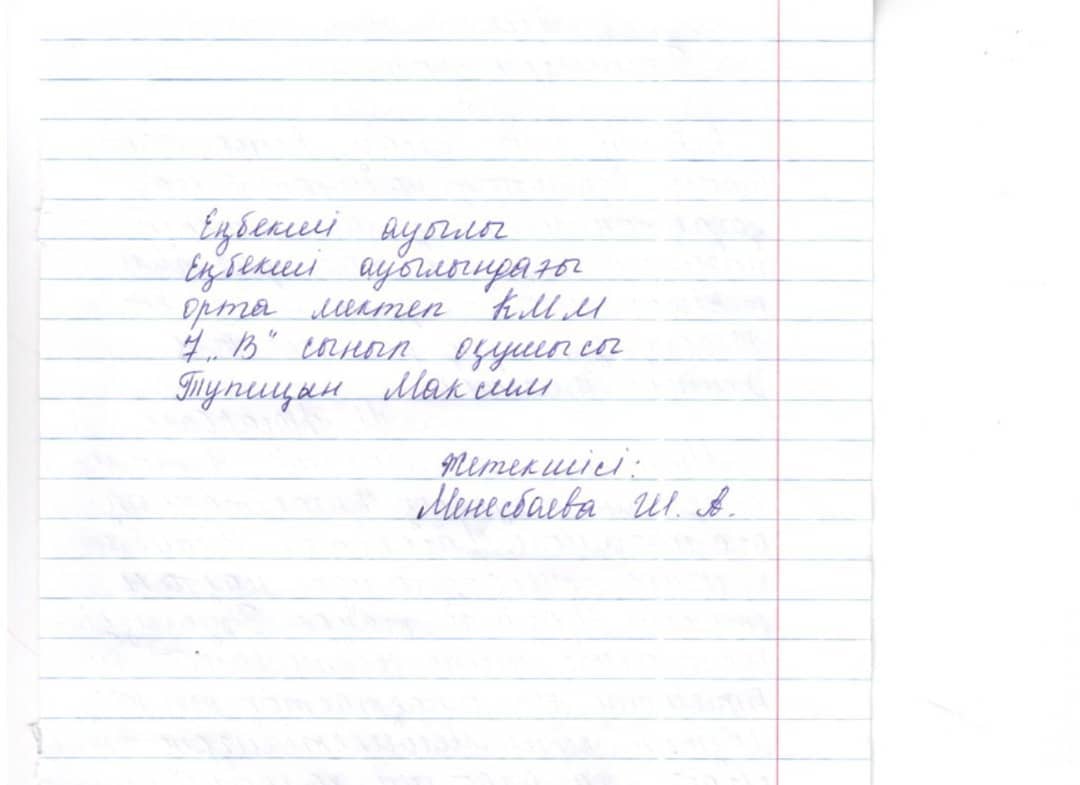 Еңбекші ауылы
Еңбекші ауылындағы
орта мектеп КММ
7 „В" сынып оқушысы
Тупицын Максим
Жетекшісі:
Менесбаева Ш. А.